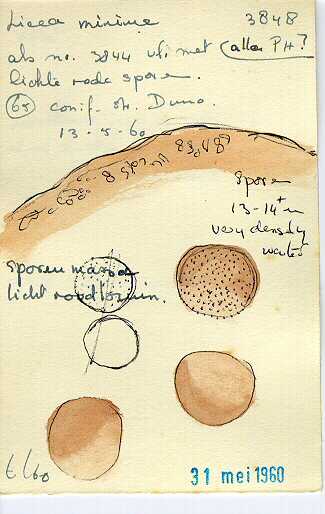 Licea minima 3848
als no. 3844 uit met (alleen PH?
lichte rode sporen.
(65) conif. str. Duno.
13-5-60
Sporen
13-14+ u
very densely
warted
Sporen massa
licht roodbruin.
t 60
31 mei 1960